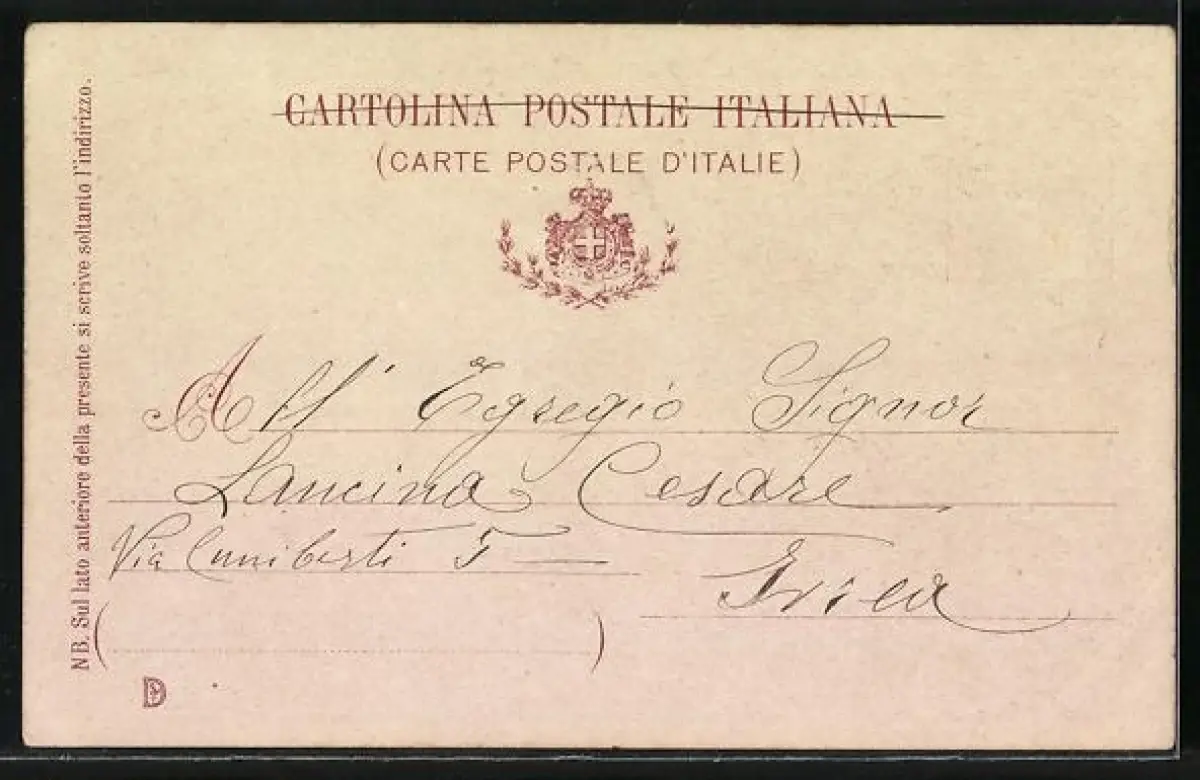 CARTOLINA POSTALE ITALIANA
(CARTE POSTALE D'ITALIE)
All' Egregio Signor
Lancina Cesare
Via Cuniberti 5
Ivrea
NB. Sul lato anteriore della presente si scrive soltanto l'indirizzo.